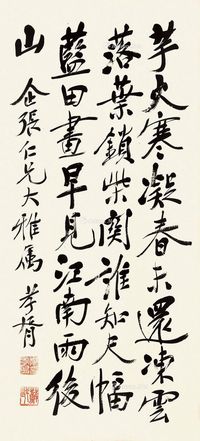 芋火寒凝春未還凍雲
落葉鎖柴關誰知尺幅
藍田畫早見江南雨後
山 企張仁兄大雅属 孝胥